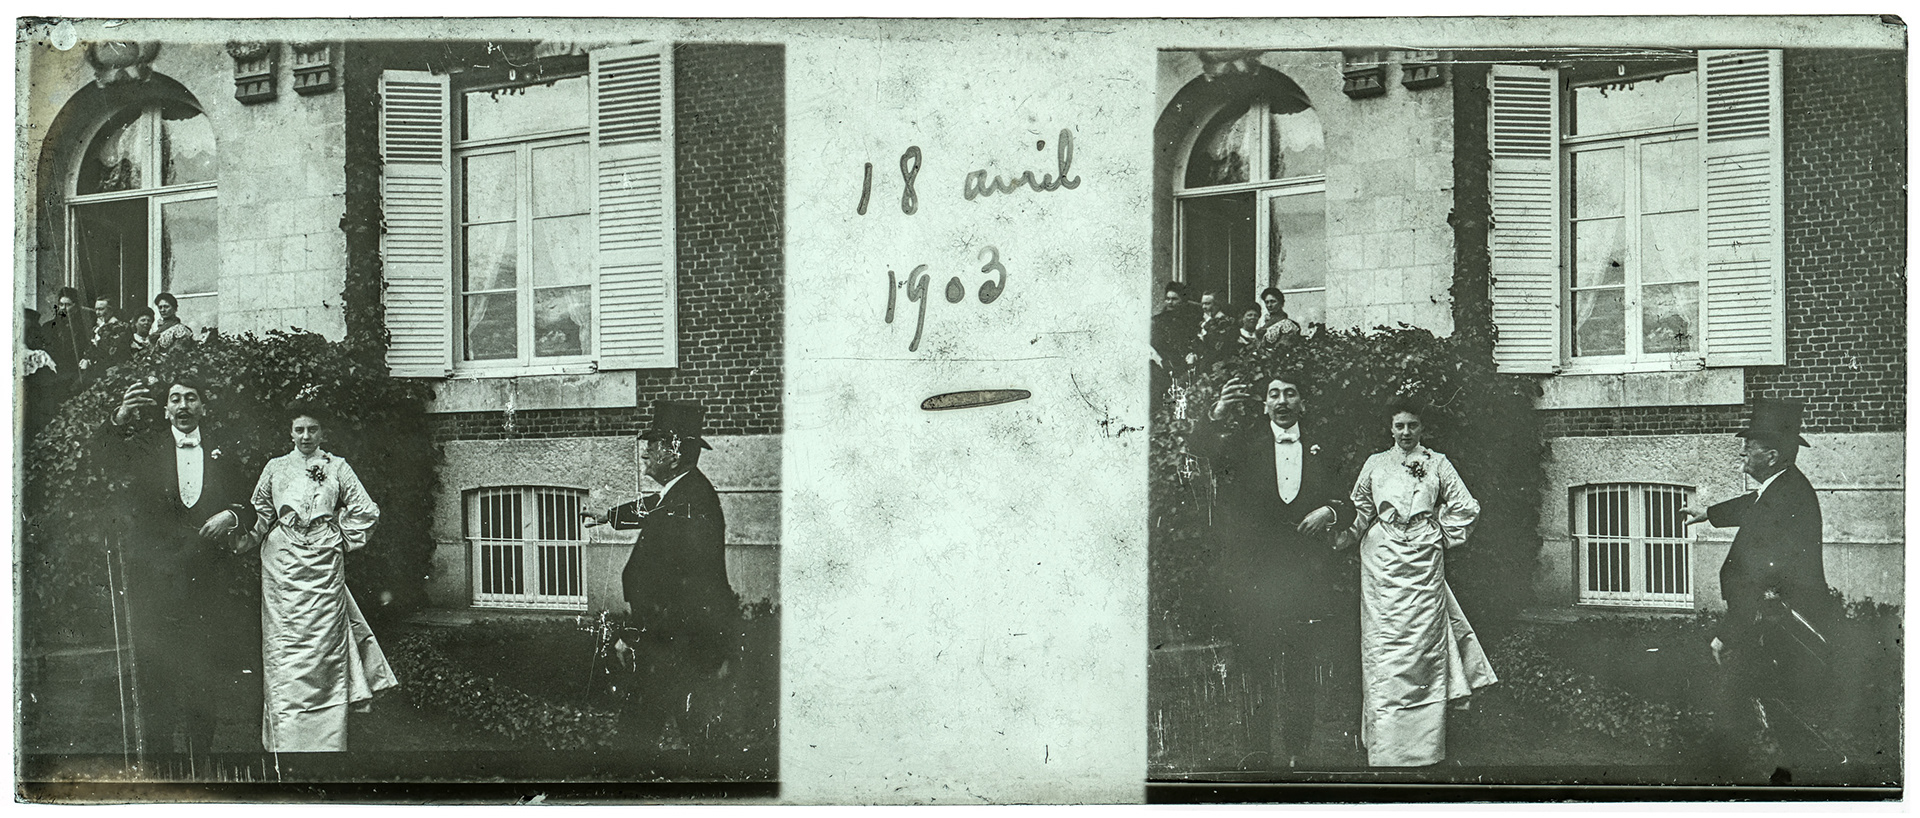 18 avril
1903